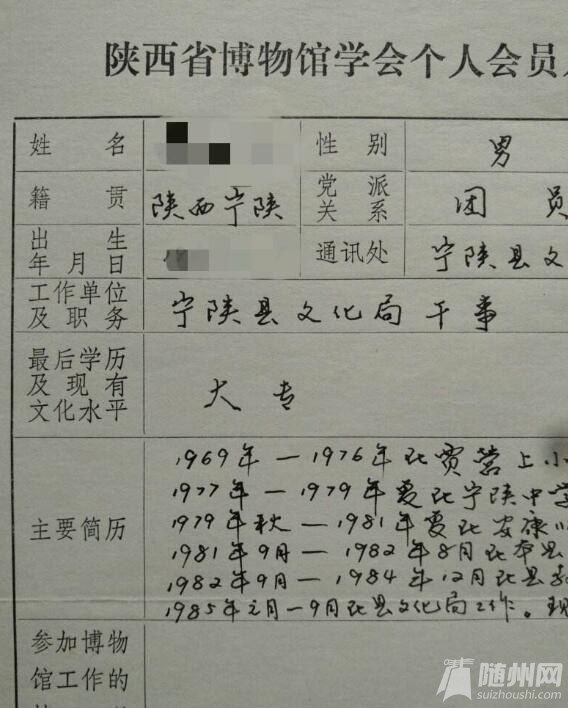 陕西省博物馆学会个人会员
姓名
性别 男
籍贯 陕西宁陕
党派关系 团员
出生年月日
通讯处 宁陕县文
工作单位及职务 宁陕县文化局干事
最后学历及现有文化水平 大专
主要简历
1969年—1976年在贾营上小
1977年—1979年夏在宁陕中学
1979年秋—1981年夏在安康
1981年9月—1982年8月在本县
1982年9月—1984年12月在县
1985年元月—9月在县文化局工作。现
参加博物
馆工作的
随州网
suizhoushi.com